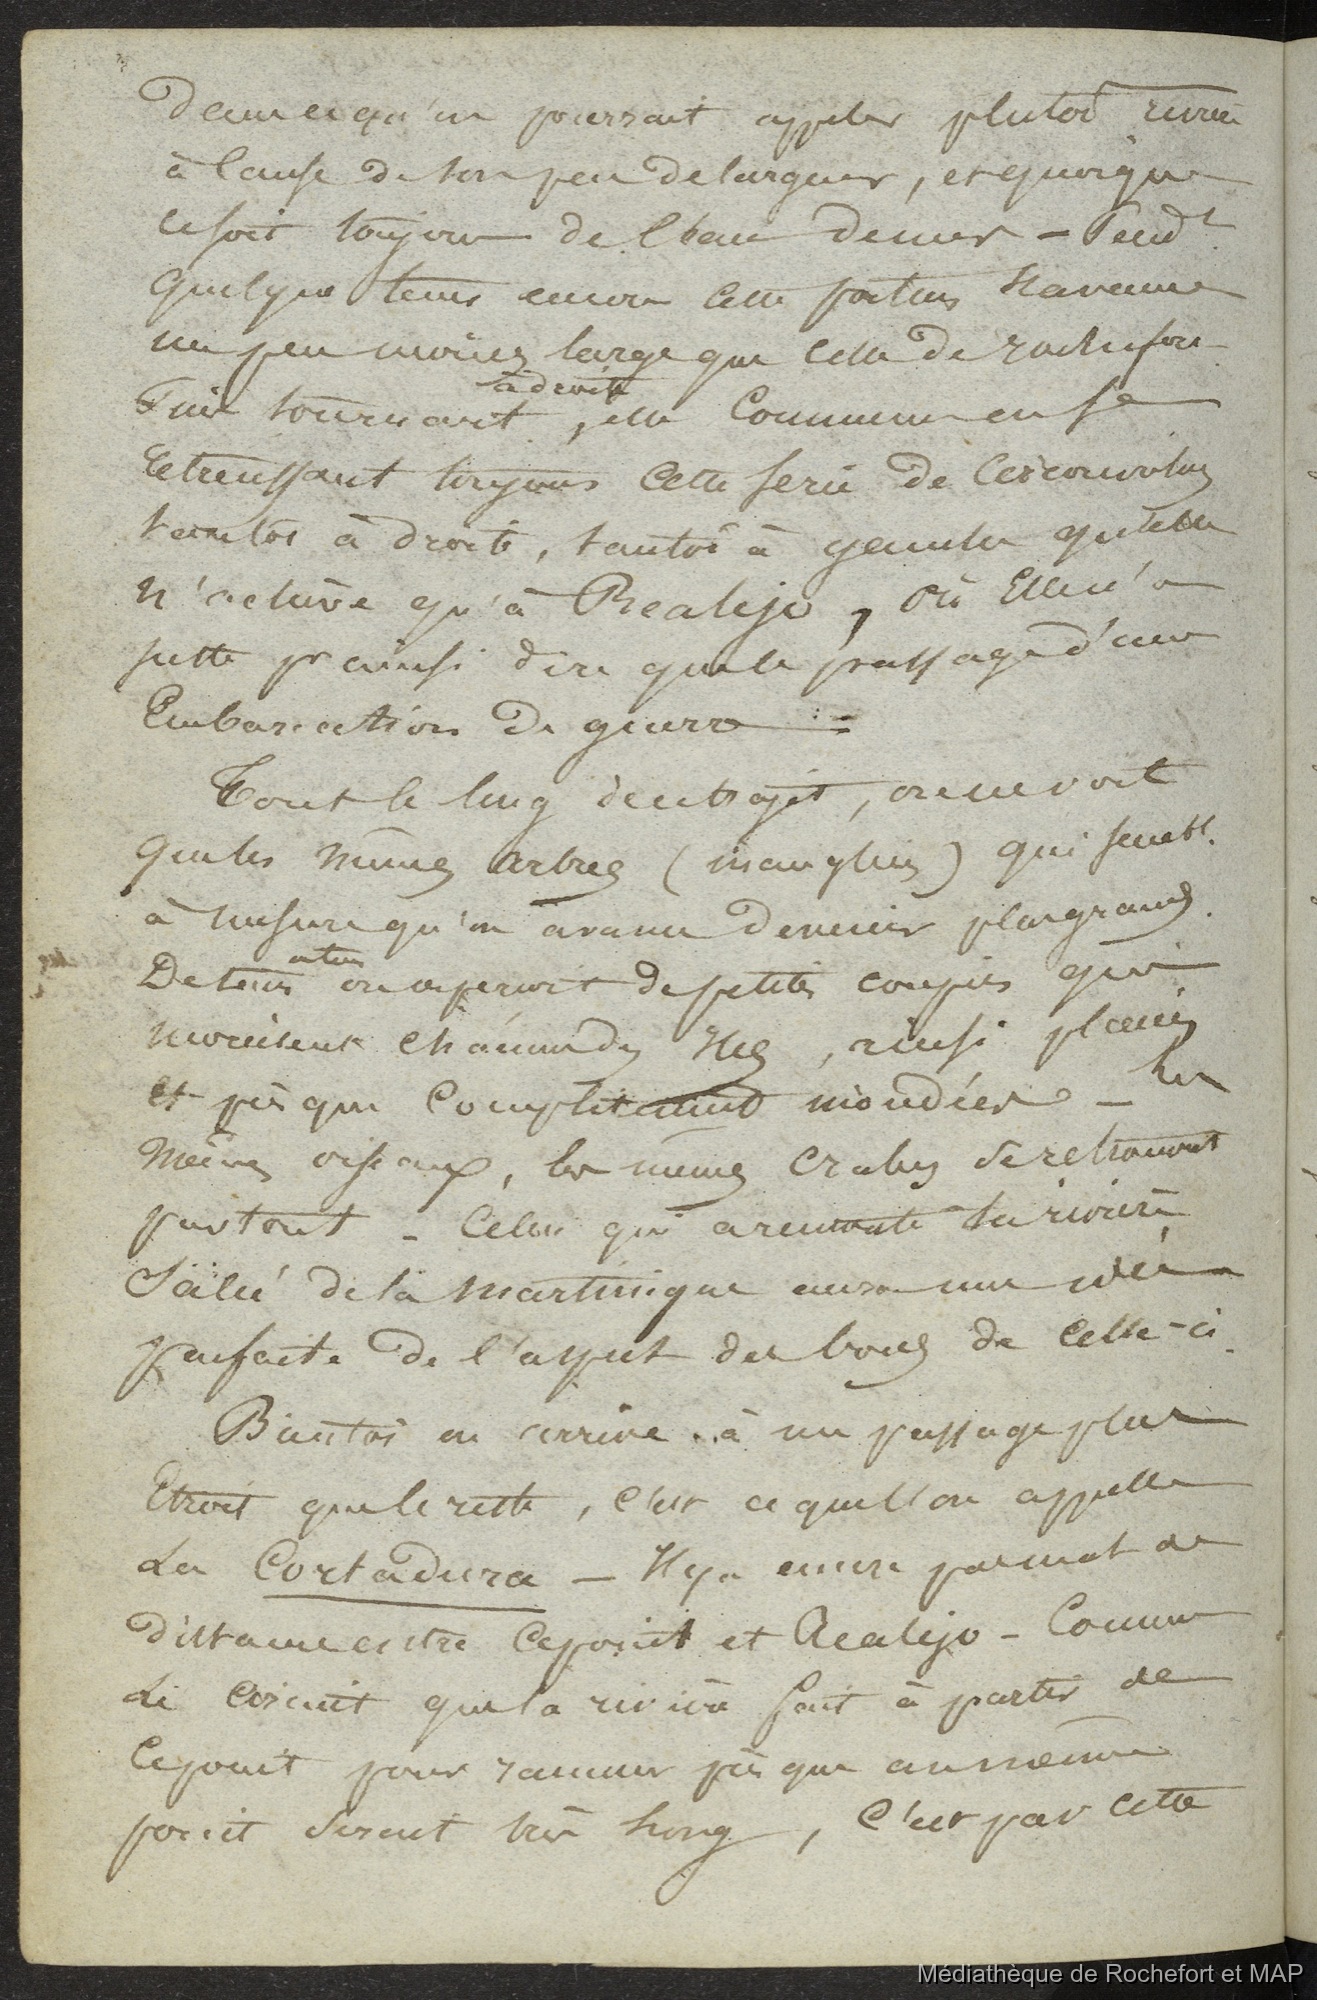 dans ce qu'on pourrait appeler plutôt rivière
à cause de son peu de largeur, et quoique
ce soit toujours de l'eau de mer - Pend.t
quelque tems encore cette
un peu moins large que celle de rochefort
Puis tournant à droite, elle commence en se
retrecissant toujours cette serie de circonvolu
tantôt à droite, tantôt à gauche qu'elle
n'achève qu'à Realejo, où Elle n'a
juste pr ainsi dire que le passage d'une
Embarcation de guerre =
Tout le long de ce trajet, on ne voit
que les mêmes arbres (mangliers) qui sembl.
à mesure qu'on avance devenir plus grands.
De tems en tems on aperçoit de petites coupées qui
et presque complitement inondées - les
mêmes oiseaux, les mêmes crabes se retrouvent
partout - Celui qui a remonté la rivière
Salée de la Martinique aura une idée
parfaite de l'aspect des bords de celle-ci.
Bientôt on arrive à un passage plus
Etroit que le reste, c'est ce que l'on appelle
La Cortadura - Il y a encore pas mal de
distance entre ce point et Realejo - Comme
Le circuit que la rivière fait à partir de
ce point pour ramener presque au même
point serait très long, c'est par cette
Médiathèque de Rochefort et MAP